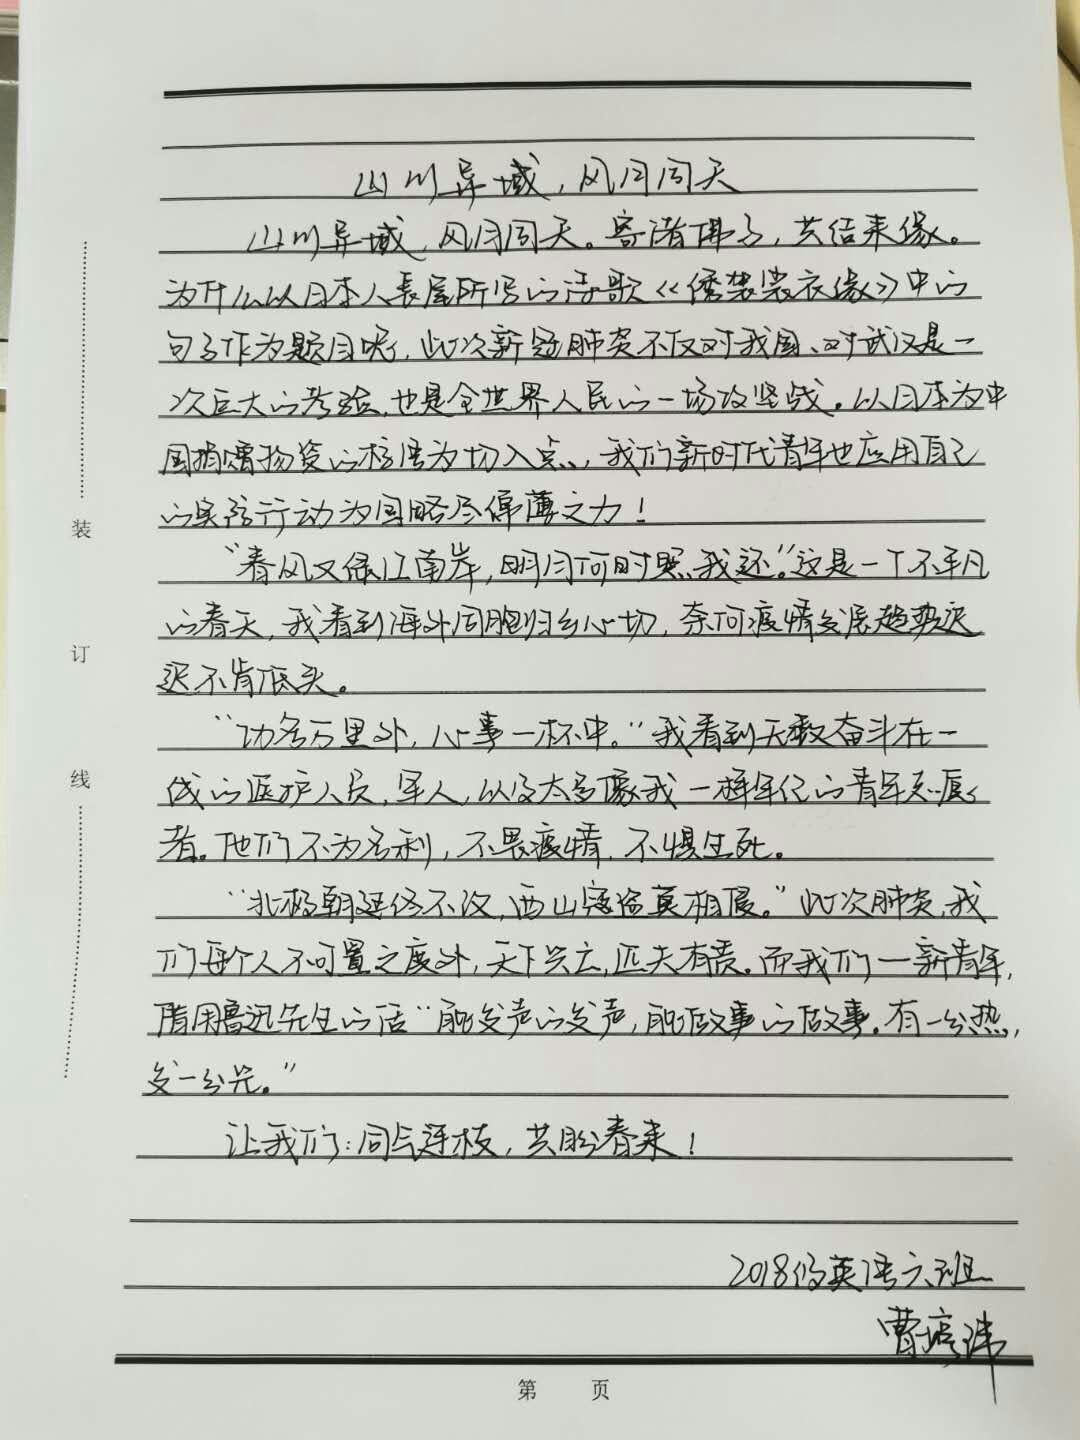 山川异域，风月同天
山川异域，风月同天。寄诸佛子，共结来缘。
为什么以日本人长屋所写的诗歌《绣袈裟衣缘》中的
句子作为题目呢，此次新冠肺炎不仅对我国、对武汉是一
次巨大的考验，也是全世界人民的一场攻坚战。以日本为中
国捐赠物资的标语为切入点，我们新时代青年也应用自己
的实际行动为国略尽绵薄之力！
“春风又绿江南岸，明月何时照我还。”这是一个不平凡
的春天，我看到海外同胞归乡心切，奈何疫情发展趋势迟
迟不肯低头。
“功名万里外，心事一杯中。”我看到无数奋斗在一
线的医护人员，军人，以及太多像我一样年纪的青年志愿
者。他们不为名利，不畏疫情，不惧生死。
“北极朝廷终不改，西山寇盗莫相侵。”此次肺炎，我
们每个人不可置之度外，天下兴亡，匹夫有责。而我们一新青年，
借用鲁迅先生的话“能发声的发声，能做事的做事。有一分热，
发一分光。”
让我们：同气连枝，共盼春来！
2018级英语六班
曹培玮
装
订
线
第 页